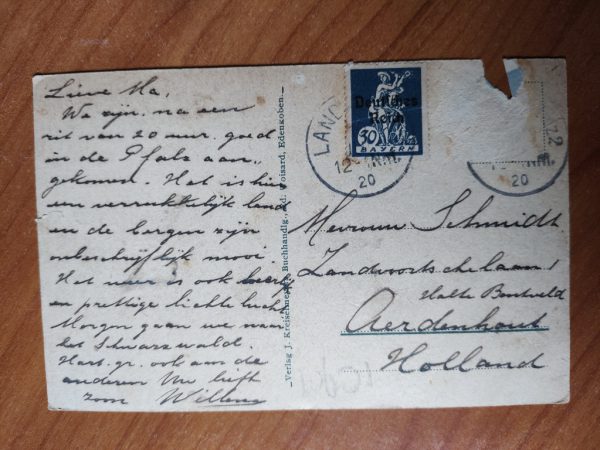 Lieve Ma,
We zijn na een
rit van 20 uur goed
in de Pfalz aan-
gekomen. Het is hier
een verrukkelijk land
en de bergen zijn
onbeschrijflijk mooi.
Het weer is ook heerlijk
en prettige lichte lucht
Morgen gaan we naar
het Schwarzwald.
Hart. gr. ook aan de
anderen Uw liefh
zoon Willem
Verlag J. Buchhandlg., Edenkoben.
LAND
12-
20
Deutsches
Reich
30
BAYERN
20
Mevrouw Schmidt
Zandvoortschelaan
Halte Bentveld
Aerdenhout
Holland